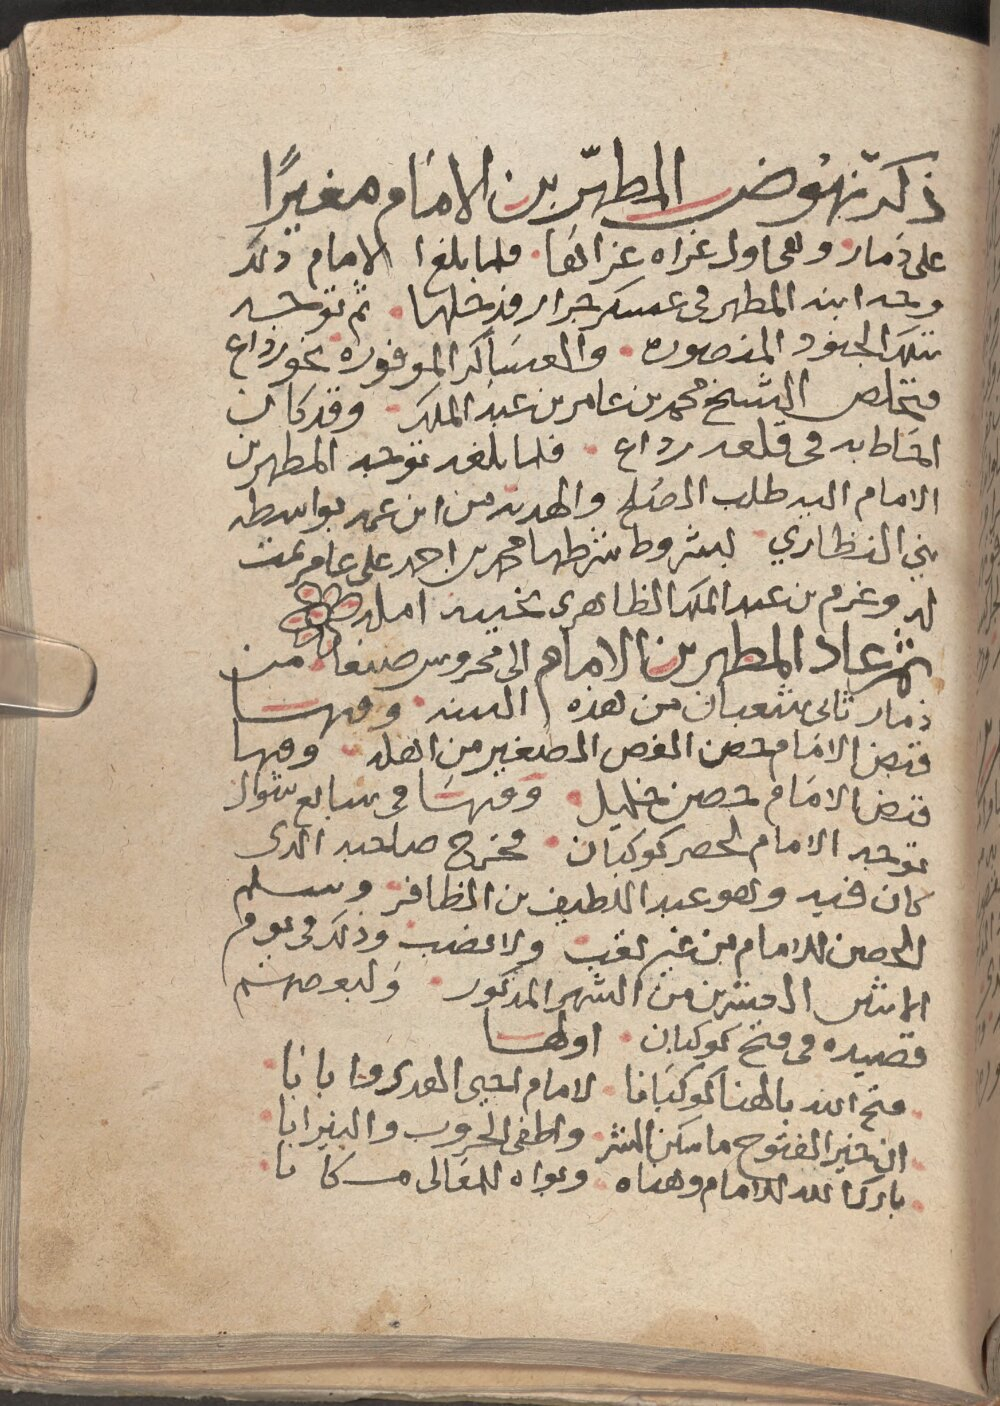 ذكر نهوض المطهّر بن الامام مغيرًا
على ذمار وهي اول غزاه غزاها فلما بلغ الامام ذلك
وجه ابنه المطهر في عسكر جرار فدخلها ثم توجه
بتلك الجنود المنصوره والعساكر الموفوره نحو رداع
فتخلص الشيخ محمد بن عامر بن عبد الملك وقد كان
احاط به في قلعه رداع فلما بلغه توجه المطهر بن
الامام اليه طلب الصلح والهدنه من ابن عمه بواسطه
بني النظاري لشروط شرطها محمد بن احمد على عامر تمت
له وغرم بن عبد الملك الظاهري بخيبه امله
ثم عاد المطهر بن الامام الى محروس صنعا من
ذمار ثاني شعبان من هذه السنه وفيها
قبض الامام حصن الفص الصغير من اهله وفيها
قبض الامام حصن وفيها في سابع شوال
توجه الامام لحصر كوكبان فخرج صاحبه الذي
كان فيه وهو عبد اللطيف بن المظافر وسلم
الحصن للامام من غير تعب ولا غضب وذلك في يوم
الاثنين العشرين من الشهر المذكور ولبعضهم
قصيده في فتح كوكبان اولها
فتح الله بالهنا كوكبانا لامام احيى الهدى وابانا
ان خير الفتوح ما سكن الشر واطفى الحروب والنيرانا
بارك الله للامام وهناه وبواه للمعالى مكانا